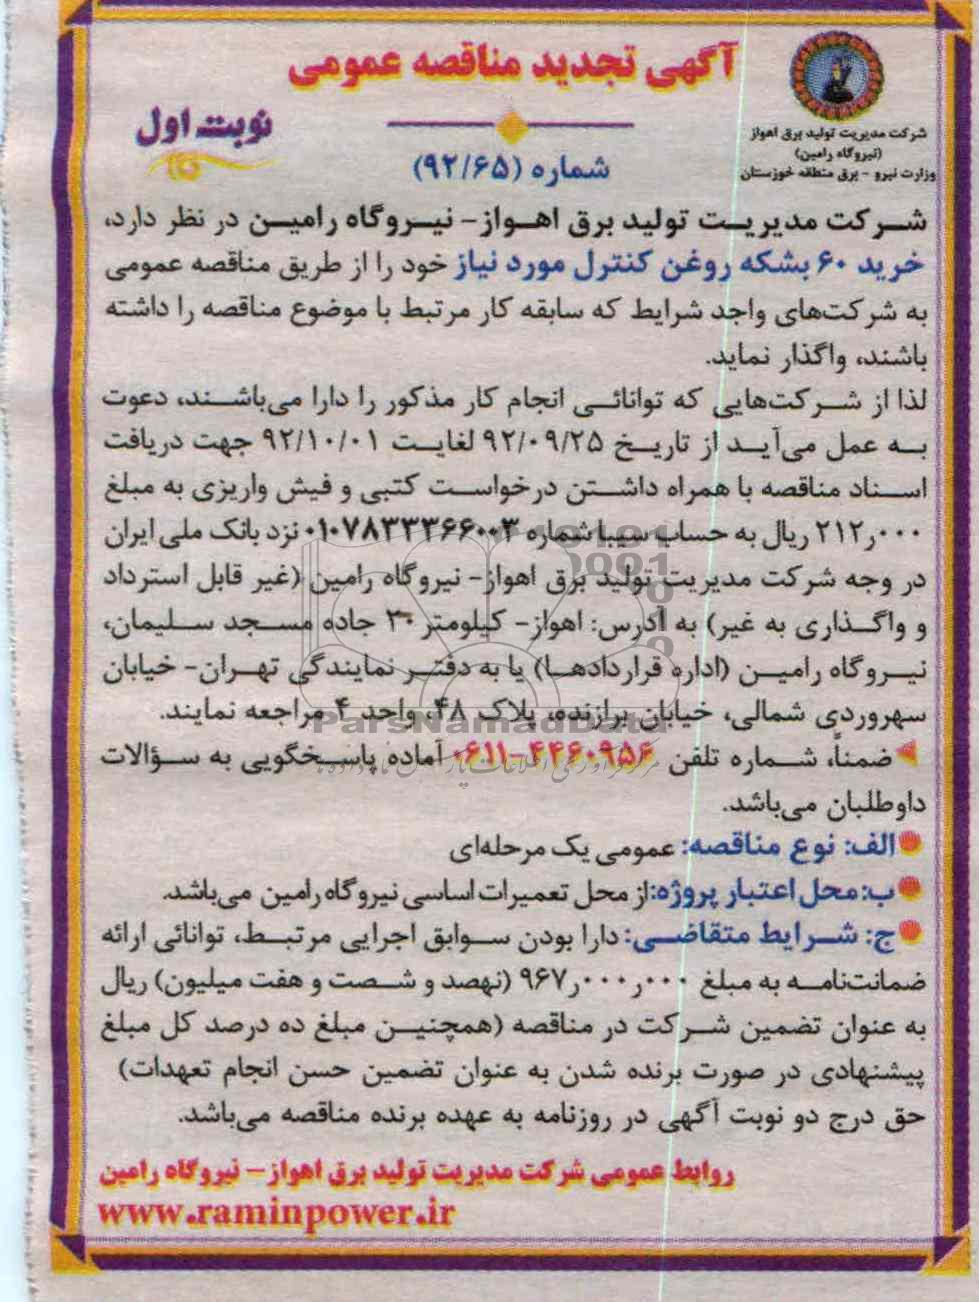 آگهی تجدید مناقصه عمومی
نوبت اول
شماره (۹۲/۶۵)
شرکت مدیریت تولید برق اهواز
(نیروگاه رامین)
وزارت نیرو - برق منطقه خوزستان
شرکت مدیریت تولید برق اهواز- نیروگاه رامین در نظر دارد،
خرید ۶۰ بشکه روغن کنترل مورد نیاز خود را از طریق مناقصه عمومی
به شرکت‌های واجد شرایط که سابقه کار مرتبط با موضوع مناقصه را داشته
باشند، واگذار نماید.
لذا از شرکت‌هایی که توانائی انجام کار مذکور را دارا می‌باشند، دعوت
به عمل می‌آید از تاریخ ۹۲/۰۹/۲۵ لغایت ۹۲/۱۰/۰۱ جهت دریافت
اسناد مناقصه با همراه داشتن درخواست کتبی و فیش واریزی به مبلغ
۲۱۲٫۰۰۰ ریال به حساب سیبا شماره ۰۱۰۷۸۳۳۳۶۶۰۰۳ نزد بانک ملی ایران
در وجه شرکت مدیریت تولید برق اهواز- نیروگاه رامین (غیر قابل استرداد
و واگذاری به غیر) به آدرس: اهواز- کیلومتر ۳۰ جاده مسجد سلیمان،
نیروگاه رامین (اداره قراردادها) یا به دفتر نمایندگی تهران- خیابان
سهروردی شمالی، خیابان برازنده، پلاک ۴۸، واحد ۴ مراجعه نمایند.
ضمناً، شماره تلفن ۴۴۶۰۹۵۶-۰۶۱۱ آماده پاسخگویی به سؤالات
داوطلبان می‌باشد.
الف: نوع مناقصه: عمومی یک مرحله‌ای
ب: محل اعتبار پروژه: از محل تعمیرات اساسی نیروگاه رامین می‌باشد.
ج: شرایط متقاضی: دارا بودن سوابق اجرایی مرتبط، توانائی ارائه
ضمانت‌نامه به مبلغ ۹۶۷٫۰۰۰٫۰۰۰ (نهصد و شصت و هفت میلیون) ریال
به عنوان تضمین شرکت در مناقصه (همچنین مبلغ ده درصد کل مبلغ
پیشنهادی در صورت برنده شدن به عنوان تضمین حسن انجام تعهدات)
حق درج دو نوبت آگهی در روزنامه به عهده برنده مناقصه می‌باشد.
روابط عمومی شرکت مدیریت تولید برق اهواز- نیروگاه رامین
www.raminpower.ir
ParsNamadData